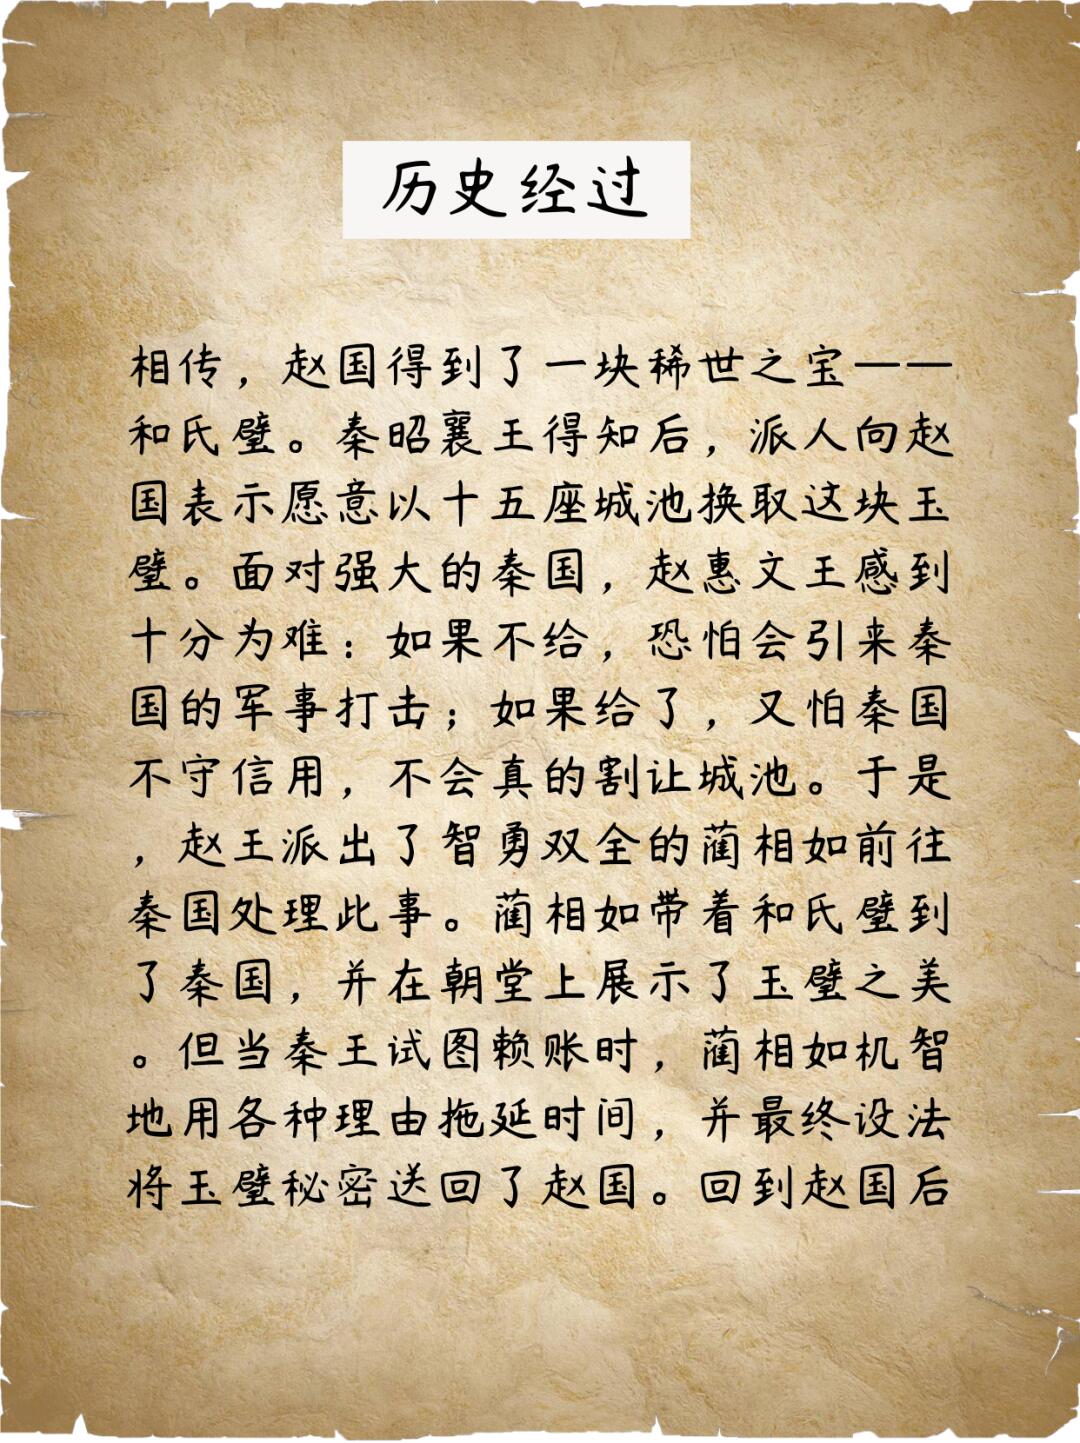 历史经过
相传，赵国得到了一块稀世之宝——
和氏璧。秦昭襄王得知后，派人向赵
国表示愿意以十五座城池换取这块玉
璧。面对强大的秦国，赵惠文王感到
十分为难：如果不给，恐怕会引来秦
国的军事打击；如果给了，又怕秦国
不守信用，不会真的割让城池。于是
，赵王派出了智勇双全的蔺相如前往
秦国处理此事。蔺相如带着和氏璧到
了秦国，并在朝堂上展示了玉璧之美
。但当秦王试图赖账时，蔺相如机智
地用各种理由拖延时间，并最终设法
将玉璧秘密送回了赵国。回到赵国后